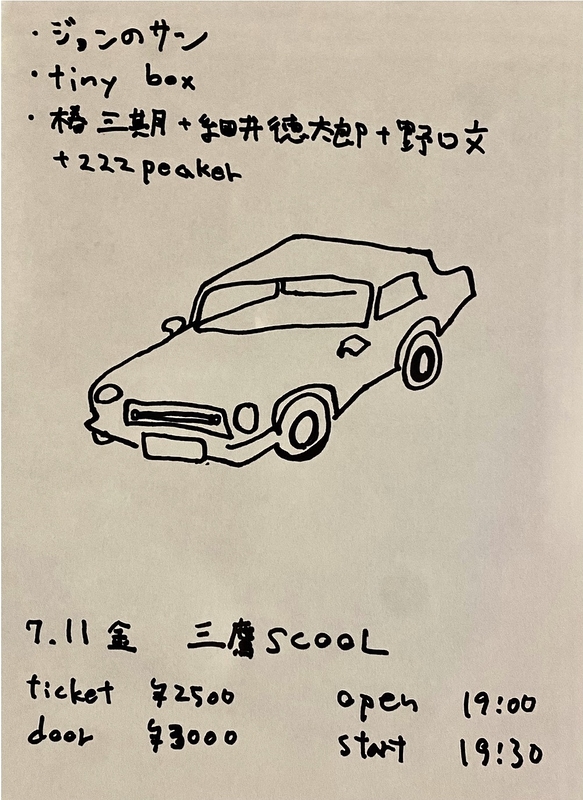 ・ジョンのサン
・tiny box
・椿三期+細井徳太郎+野口文
+222peaker
7.11 金 三鷹SCOOL
ticket ¥2500 open 19:00
door ¥3000 start 19:30